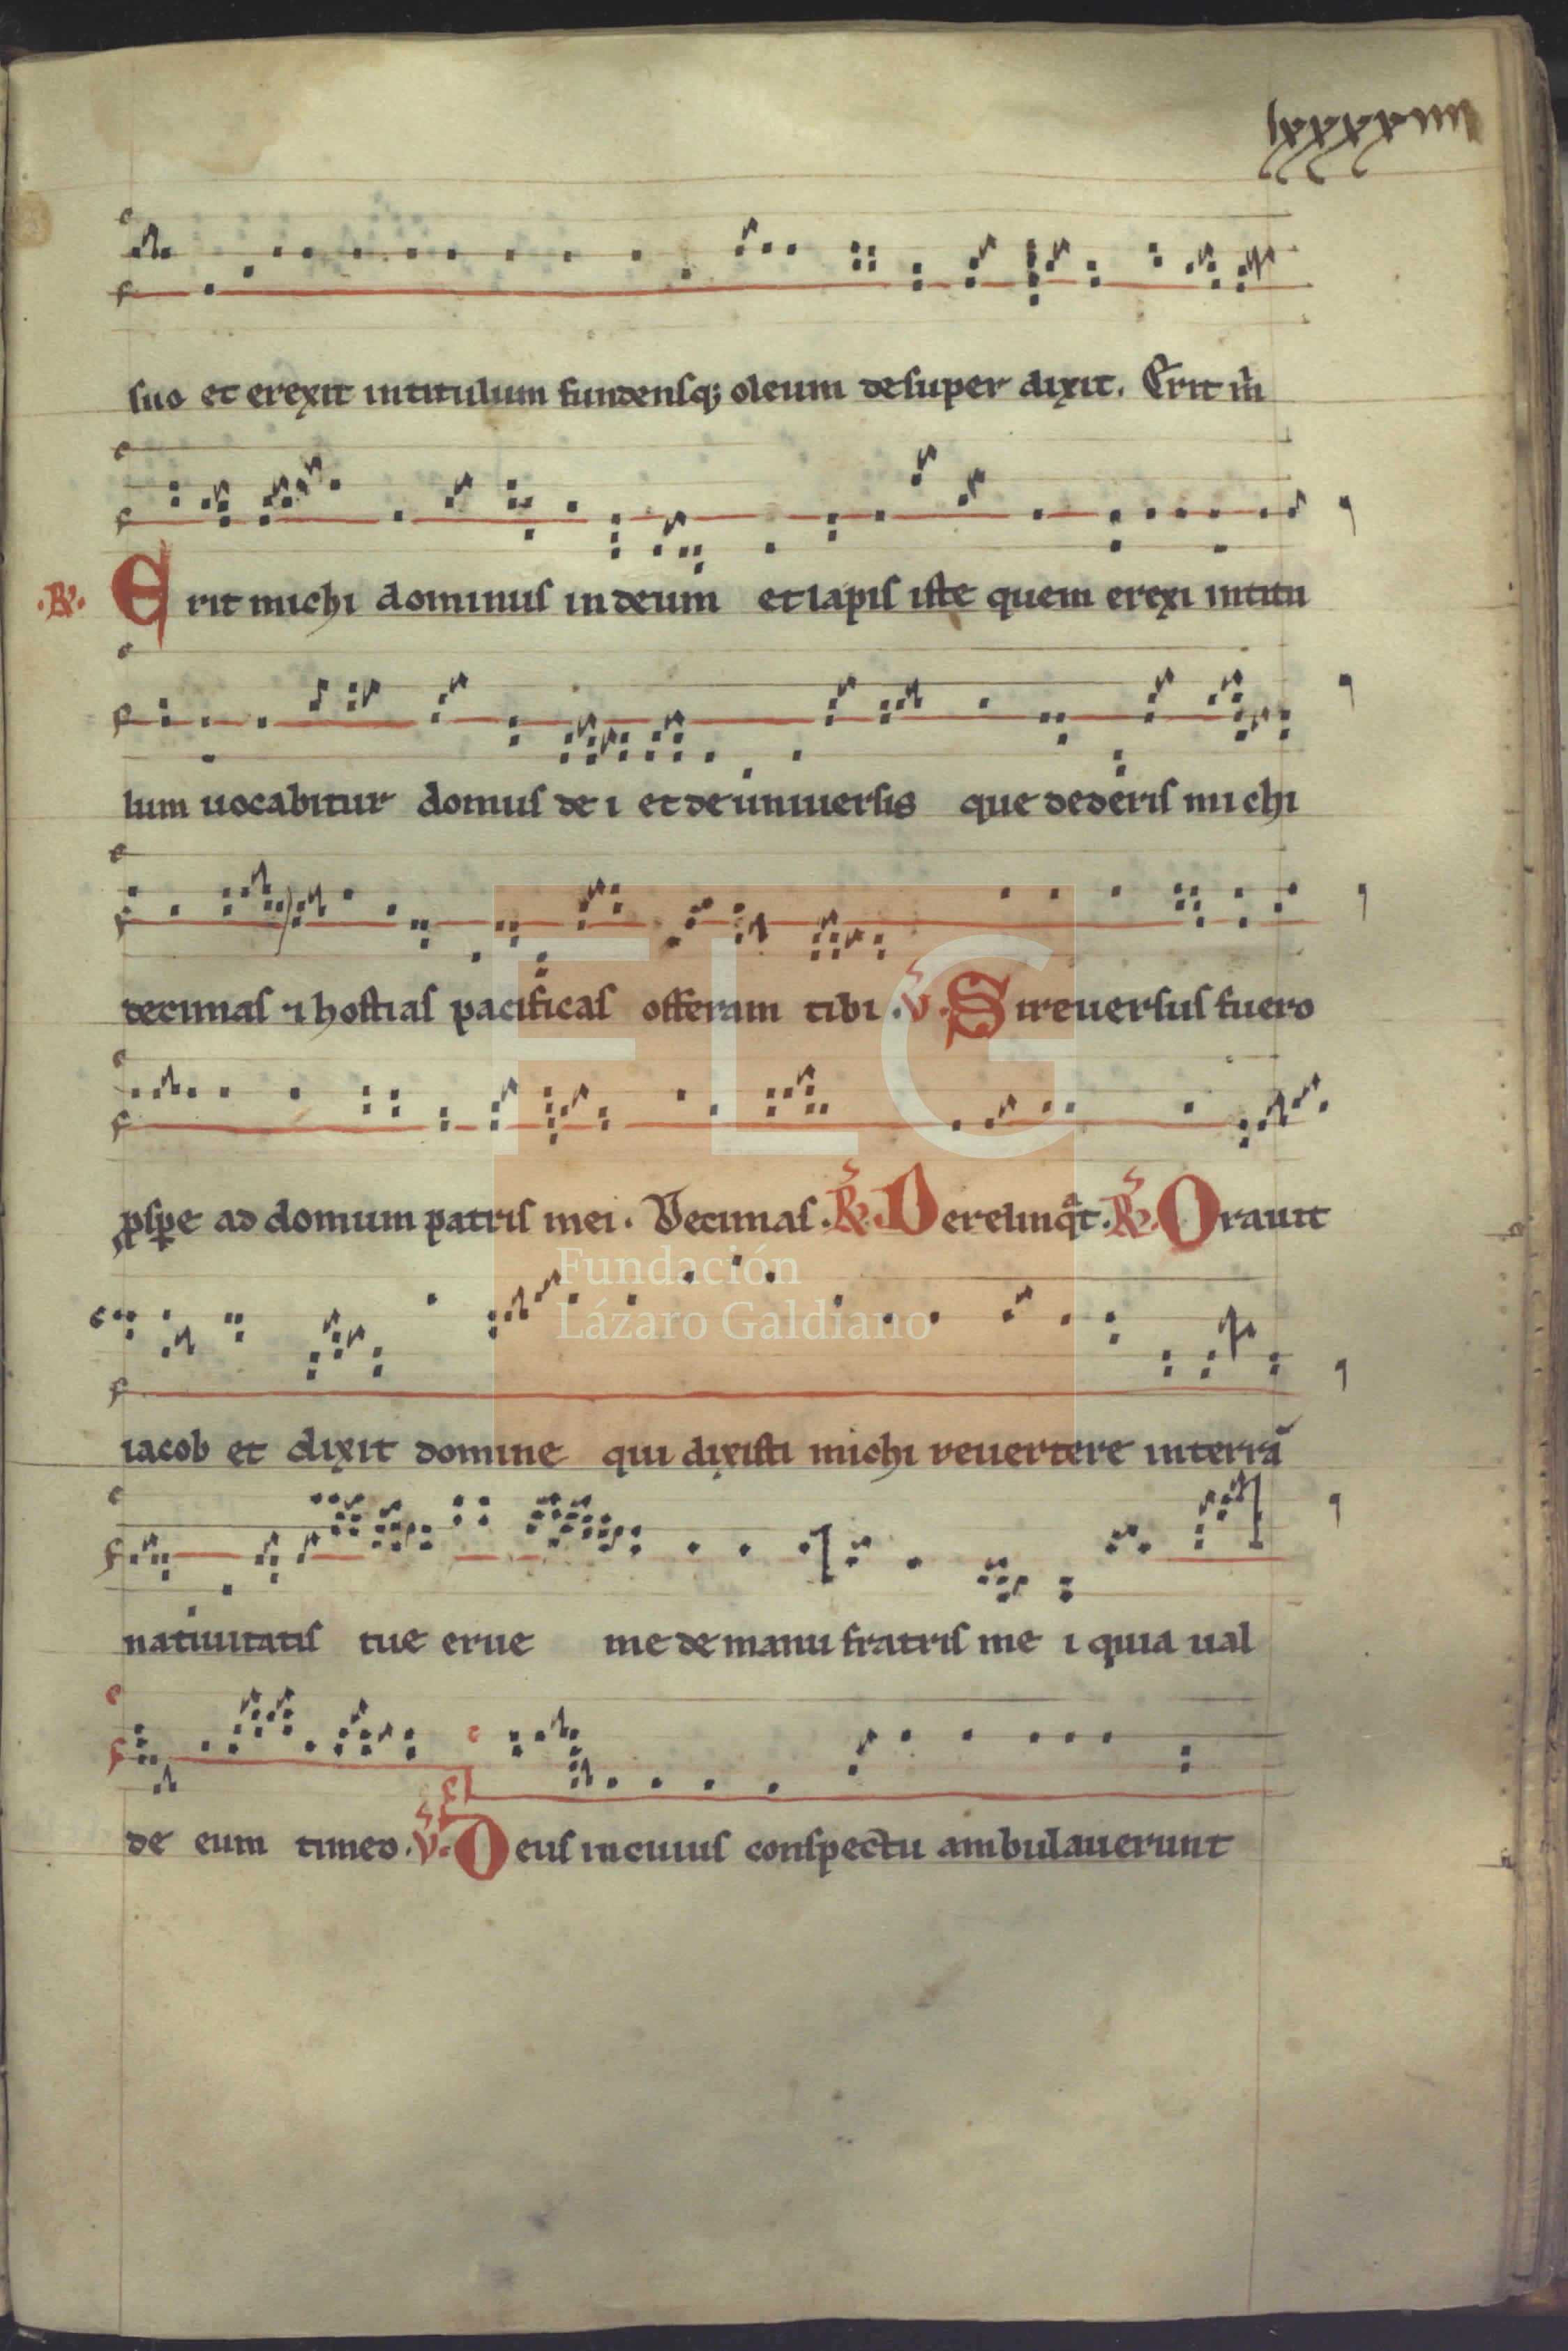 lxxxxviiii
suo et erexit in titulum fundensq; oleum desuper dixit. Erit m̄
.R̸. Erit michi dominus in deum et lapis iste quem erexi in titu
lum uocabitur domus de i et de uniuersis que dederis michi
decimas ⁊ hostias pacificas offeram tibi .V. Si reuersus fuero
ꝓspe ad domum patris mei. Decimas .R̸. Derelinqͣt .R̸. Orauit
iacob et dixit domine qui dixisti michi reuertere in terrā
natiuitatis tue erue me de manu fratris me i quia ual
de eum timeo .V. Deus in cuius conspectu ambulauerunt
FLG
Fundación
Lázaro Galdiano